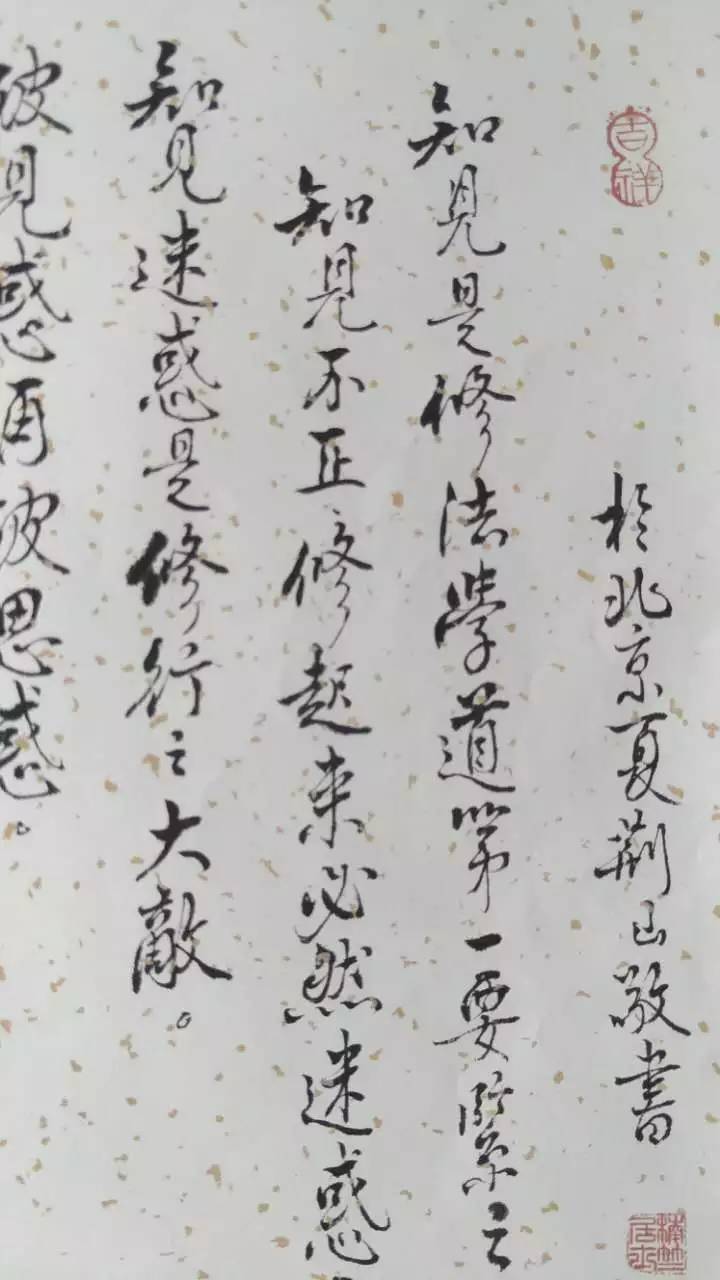 吉祥
於北京夏荊山敬書
知見是修法學道第一要緊之
知見不正修起來必然迷惑
知見迷惑是修行之大敵。
破見惑再破思惑。